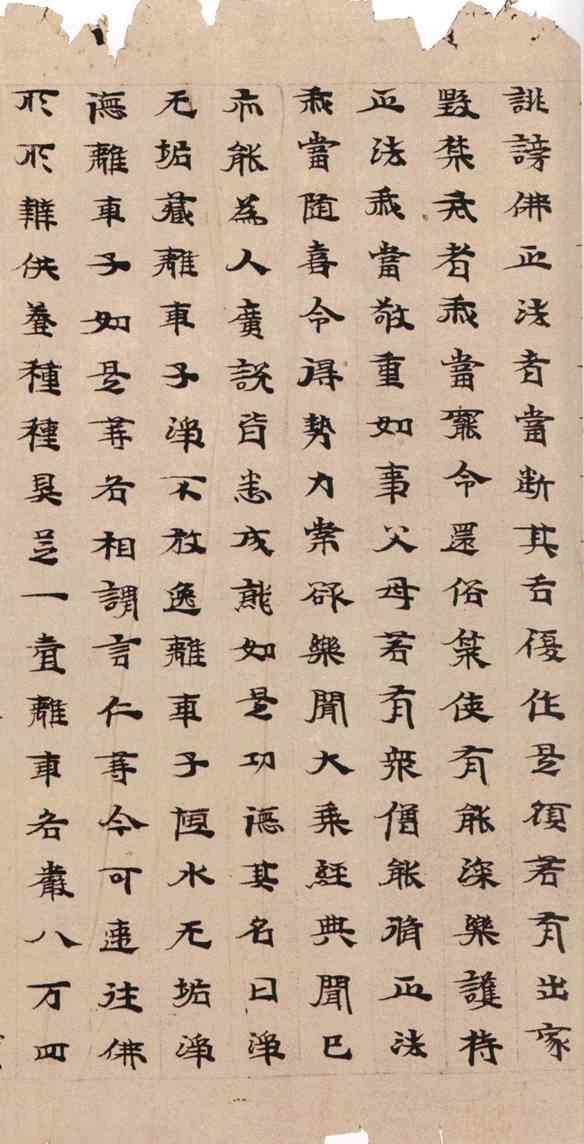 誹謗佛正法者當斷其舌復作是願若有出家
毀禁戒者我當罷令還俗策使有能深樂護持
正法我當敬重如事父母若有衆僧能脩正法
我當随喜令得勢力常欲樂聞大乘經典聞已
亦能為人廣說皆悉成就如是功德其名曰淨
无垢藏離車子淨不放逸離車子恒水无垢淨
德離車子如是等各相謂言仁等今可速往佛
所所辦供養種種具足一一離車各嚴八万四